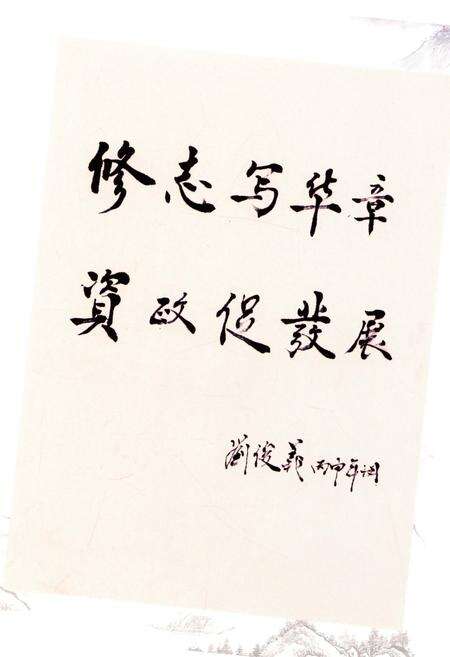 修志写华章
資政促發展
劉俊義丙申年